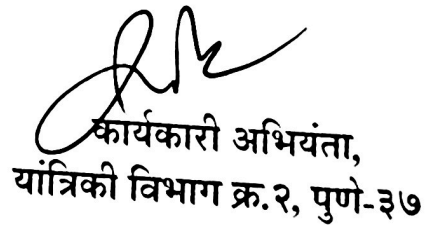 कार्यकारी अभियंता,
यांत्रिकी विभाग क्र.२, पुणे-३७